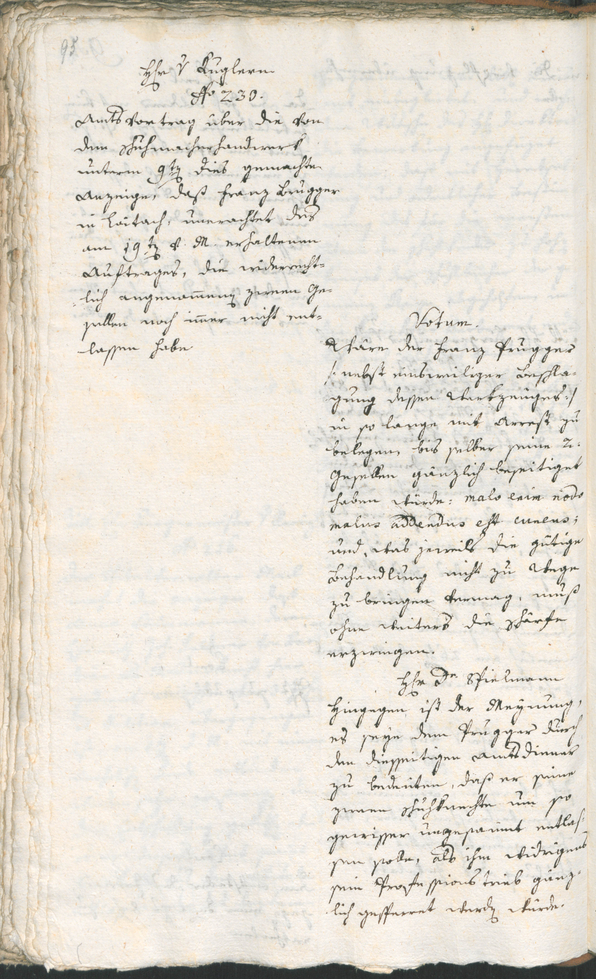 95
Hh: v Kuglern
No 230.
Amtsvortrag über die von
dem Schuhmacherhandwerk
unterm 9ten dies gemachte
Anzeige, daß Franz Brugger
in Laitach, unerachtet des
am 19ten v. M. erhaltenen
Auftrages, die widerrecht-
lich angenommen zween Ge-
sellen noch immer nicht ent-
lassen habe
Votum.
Wäre der Franz Prugger
/: nebst einsweiliger Beschla-
gung dessen Werkzeuges :/
in so lange mit Arrest zu
belegen, bis selber seine 2.
Gesellen gänzlich beseitiget
haben würde: malo enim nodo
malus addendus est cuneus;
und was jeweils die gütige
Behandlung nicht zu Wege
zu bringen vermag, muß
ohne weiters die Schärfe
erzwingen.
Hh: Dr Spielmann
Hingegen ist der Meynung,
es seye dem Prugger durch
den diesseitigen Amtsdiener
zu bedeuten, daß er seine
zween Schuhknechte um so
gewisser ungesäumt entlas-
sen solle, als ihm widrigens
sein Professionstrieb gänz-
lich gesperret werden würde.